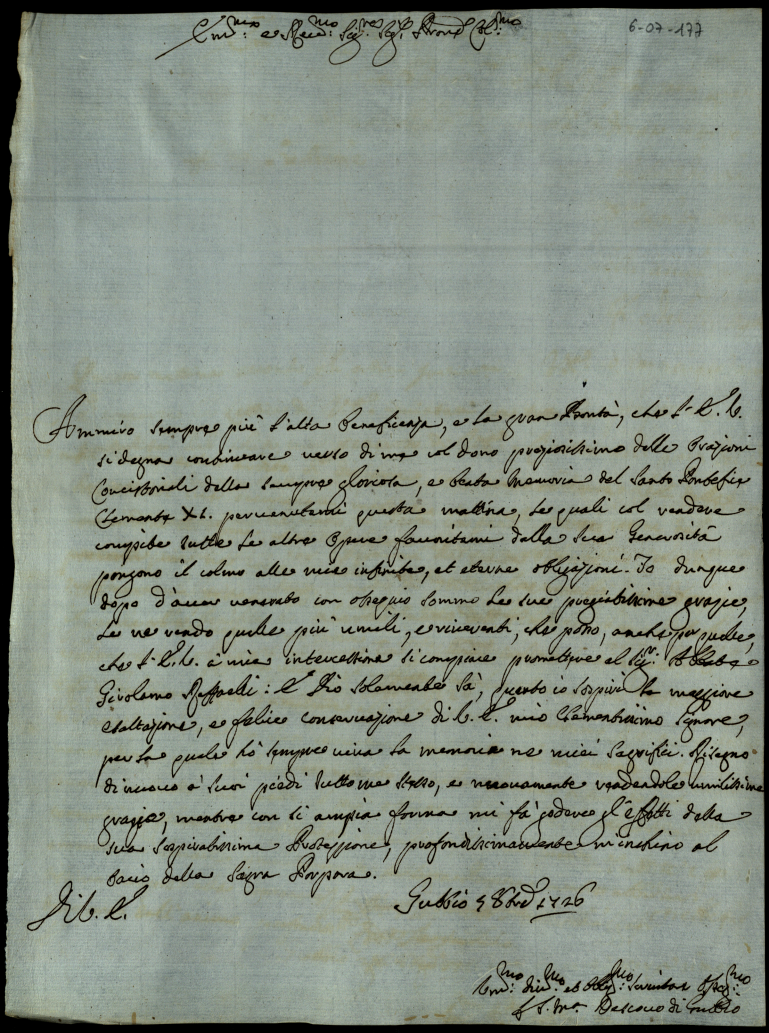 6-07-177
Em.mo e Rev.mo Sig.re Sig.r Pron Col.mo
Ammiro sempre più l'alta beneficenza, e la gran Bontà, che l'E. V.
si degna continuare verso di me col dono preziosissimo delle Orazioni
Concistoriali della sempre gloriosa, e beata Memoria del Santo Pontefice
Clemente XI. pervenutemi questa mattina, le quali col rendere
compite tutte le altre Opere favoritemi dalla Sua Generosità
pongono il colmo alle mie infinite, et eterne obligazioni. Io dunque
dopo d'aver venerato con ossequio sommo le sue pregiatissime grazie,
le ne rendo quelle più umili, e riverenti, che posso, anche per quelle,
che l'E. V. à mia intercessione si compiace promettere al Sig.r Abbate
Girolamo Raffaelli: E Dio solamente sà, quanto io sospiri la maggiore
esaltazione, e felice conservazione di V. E. mio Clementissimo Signore,
per la quale hò sempre viva la memoria ne miei Sagrifici. Rasegno
di nuovo à suoi piedi tutto me stesso, e nuovamente rendendole umilissime
grazie, mentre con sì ampia forma mi fà godere gl'effetti della
sua sospiratissima Protezzione, profondissimamente m'inchino al
bacio della Sagra Porpora.
Di V. E.
Gubbio 1726
Um.mo Div.mo et Obl.mo Servitore Osseq.mo
Vescovo di Gubbio